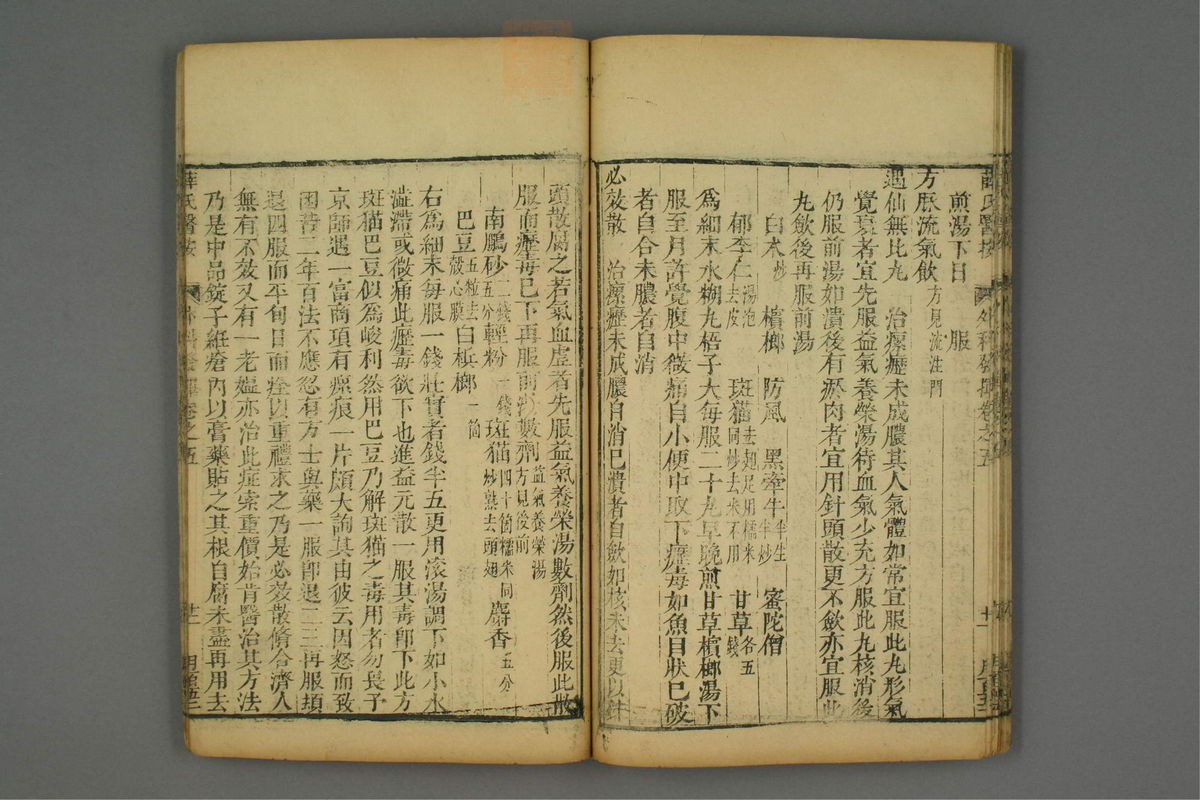 煎湯下日 服
方脈流氣飲方見流注門
遇仙無比丸 治瘰癧未成膿其人氣體如常宜服此丸形氣
覺衰者宜先服益氣養榮湯待血氣少充方服此丸核消後
仍服前湯如潰後有瘀肉者宜用針頭散更不斂亦宜服此
丸斂後再服前湯
白朮炒 檳榔 防風 黑牽牛半生半炒 蜜陀僧
郁李仁湯泡去皮 斑猫去翅足用糯米同炒去米不用 甘草各五錢
爲細末水糊丸梧子大每服二十丸早晚煎甘草檳榔湯下
服至月許覺腹中微痛自小便中取下癧毒如魚目狀已破
者自合未膿者自消
必效散 治瘰癧未成膿自消已潰者自斂如核未去更以針
頭散腐之若氣血虛者先服益氣養榮湯數劑然後服此散
服而癧毒已下再服前湯數劑益氣養榮湯方見後前
南鵬砂二錢五分 輕粉一錢 斑猫四十箇糯米同炒熟去頭翅 麝香五分
巴豆五粒去殼心膜 白梹榔一箇
右爲細末每服一錢壯實者錢半五更用滾湯調下如小水
澁滯或微痛此癧毒欲下也進益元散一服其毒卽下此方
斑猫巴豆似爲峻利然用巴豆乃解斑猫之毒用者勿畏予
京師遇一富商項有瘰痕一片頗大詢其由彼云因怒而致
困苦二年百法不應忽有方士與藥一服卽退二三再服頓
退四服而平旬日而痊以重禮求之乃是必效散脩合濟人
無有不效又有一老媼亦治此症索重價始肯醫治其方法
乃是中品錠子紙瘡內以膏藥貼之其根自腐未盡再用去
薛氏醫按
外科發揮卷之五
廿一